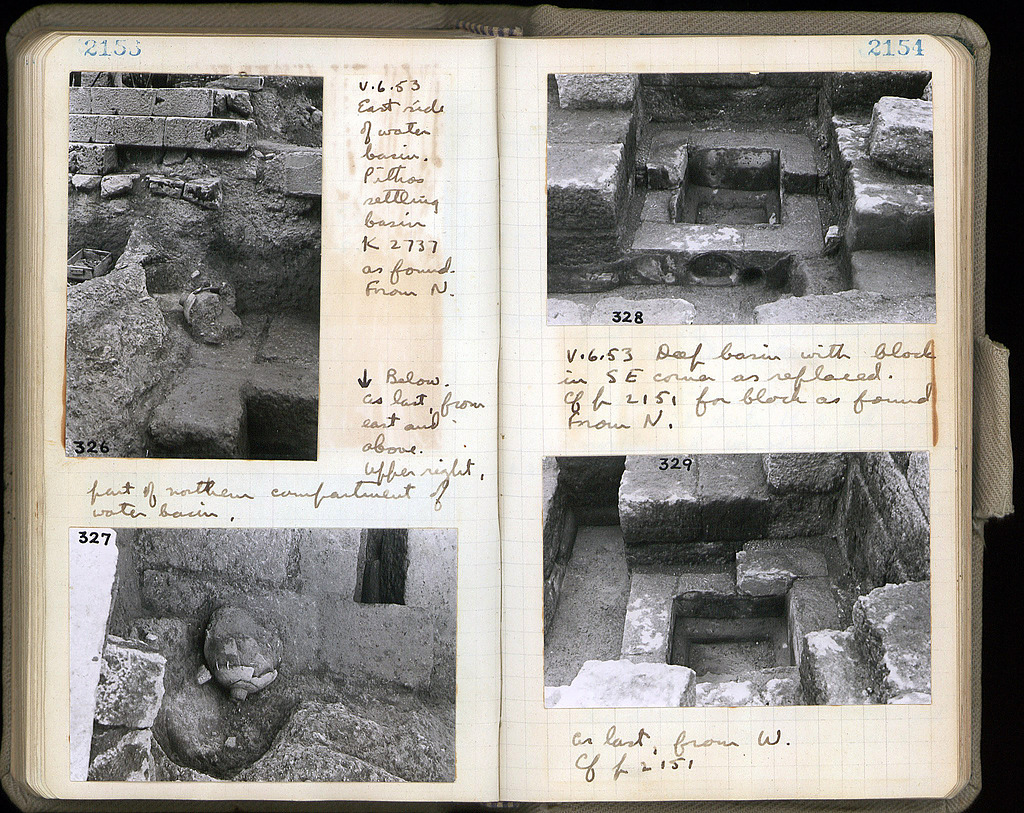 2153
V.6.53
East side
of water
basin.
Pithos
settling
basin
K 2737
as found.
From N.
326
↓ Below.
as last, from
east and
above.
Upper right,
part of northern compartment of
water basin.
327
2154
328
V.6.53 Deep basin with block
in SE corner as replaced.
Cf p 2151 for block as found
From N.
329
as last, from W.
Cf p 2151